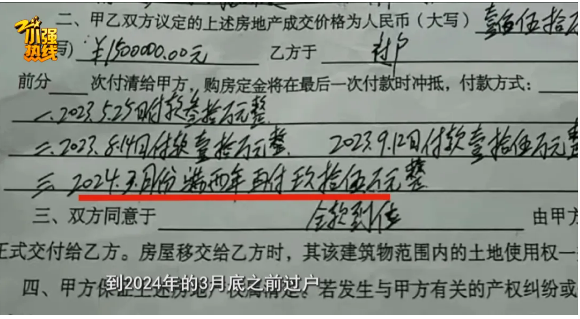 小强热线
二、甲乙双方议定的上述房地产成交价格为人民币（大写）壹佰伍拾万
写）￥1500000.00元 乙方于 过户
前分 次付清给甲方，购房定金将在最后一次付款时冲抵，付款方式：
一.2023.5.25日付款叁拾万元整
二.2023.8.14日付款壹拾万元整 2023.9.12日付款壹拾伍万元整
三 2024.3月份满两年再付玖拾伍万元整
三、双方同意于 全款到位 由甲方
正式交付给乙方。房屋移交给乙方时，其该建筑物范围内的土地使用权一
到2024年的3月底之前过户
四、甲方保证上述房地产权属清楚。若发生与甲方有关的产权纠纷或